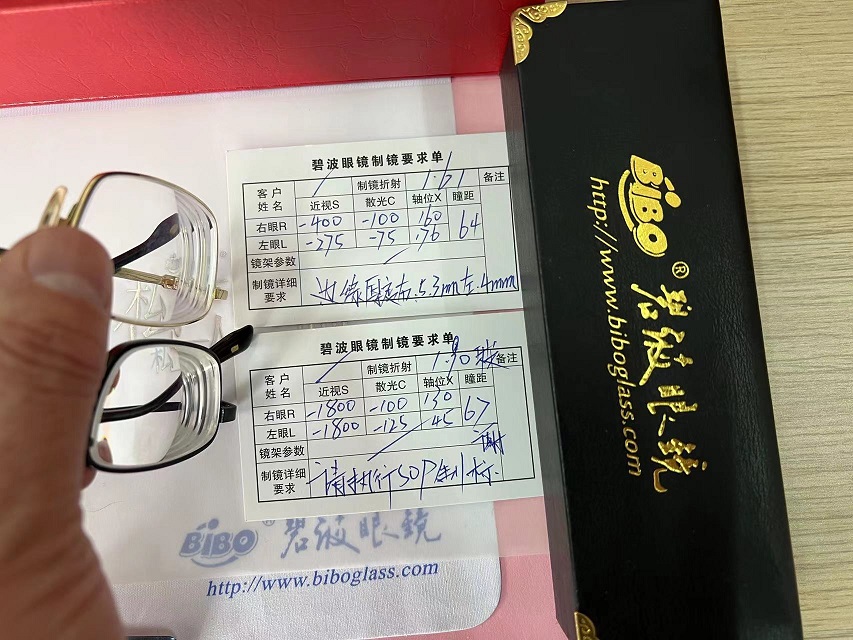 碧波眼镜制镜要求单
客户姓名 制镜折射 1.61 备注
近视S 散光C 轴位X 瞳距
右眼R -400 -100 160 64
左眼L -275 -75 176
镜架参数
制镜详细要求 边缘厚度右.5.3mm左.4mm
碧波眼镜制镜要求单
客户姓名 制镜折射 1.90 备注
近视S 散光C 轴位X 瞳距
右眼R -1800 -100 130 67
左眼L -1800 -125 45
镜架参数
制镜详细要求 请执行SOP制标 谢
BiBO® 碧波眼镜
http://www.biboglass.com
BiBO® 碧波眼镜
http://www.biboglass.com